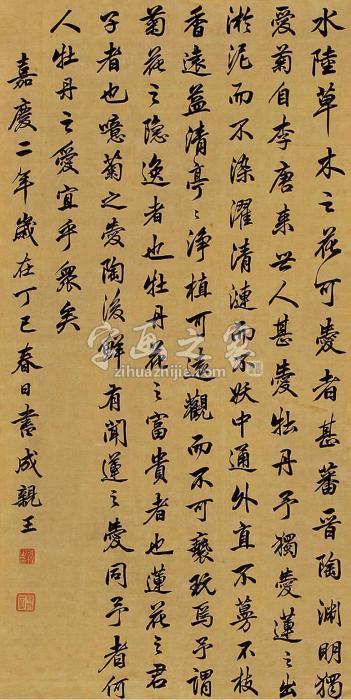 水陸草木之花可愛者甚蕃晋陶渊明獨
愛菊自李唐来世人甚愛牡丹予獨愛蓮之出
淤泥而不染濯清漣而不妖中通外直不蔓不枝
香遠益清亭〻净植可遠觀而不可褻玩焉予謂
菊花之隐逸者也牡丹花之富貴者也蓮花之君
子者也噫菊之愛陶後鮮有聞蓮之愛同予者何
人牡丹之愛宜乎衆矣
嘉慶二年歲在丁巳春日書成親王
字画之家
zihuazhijia.com